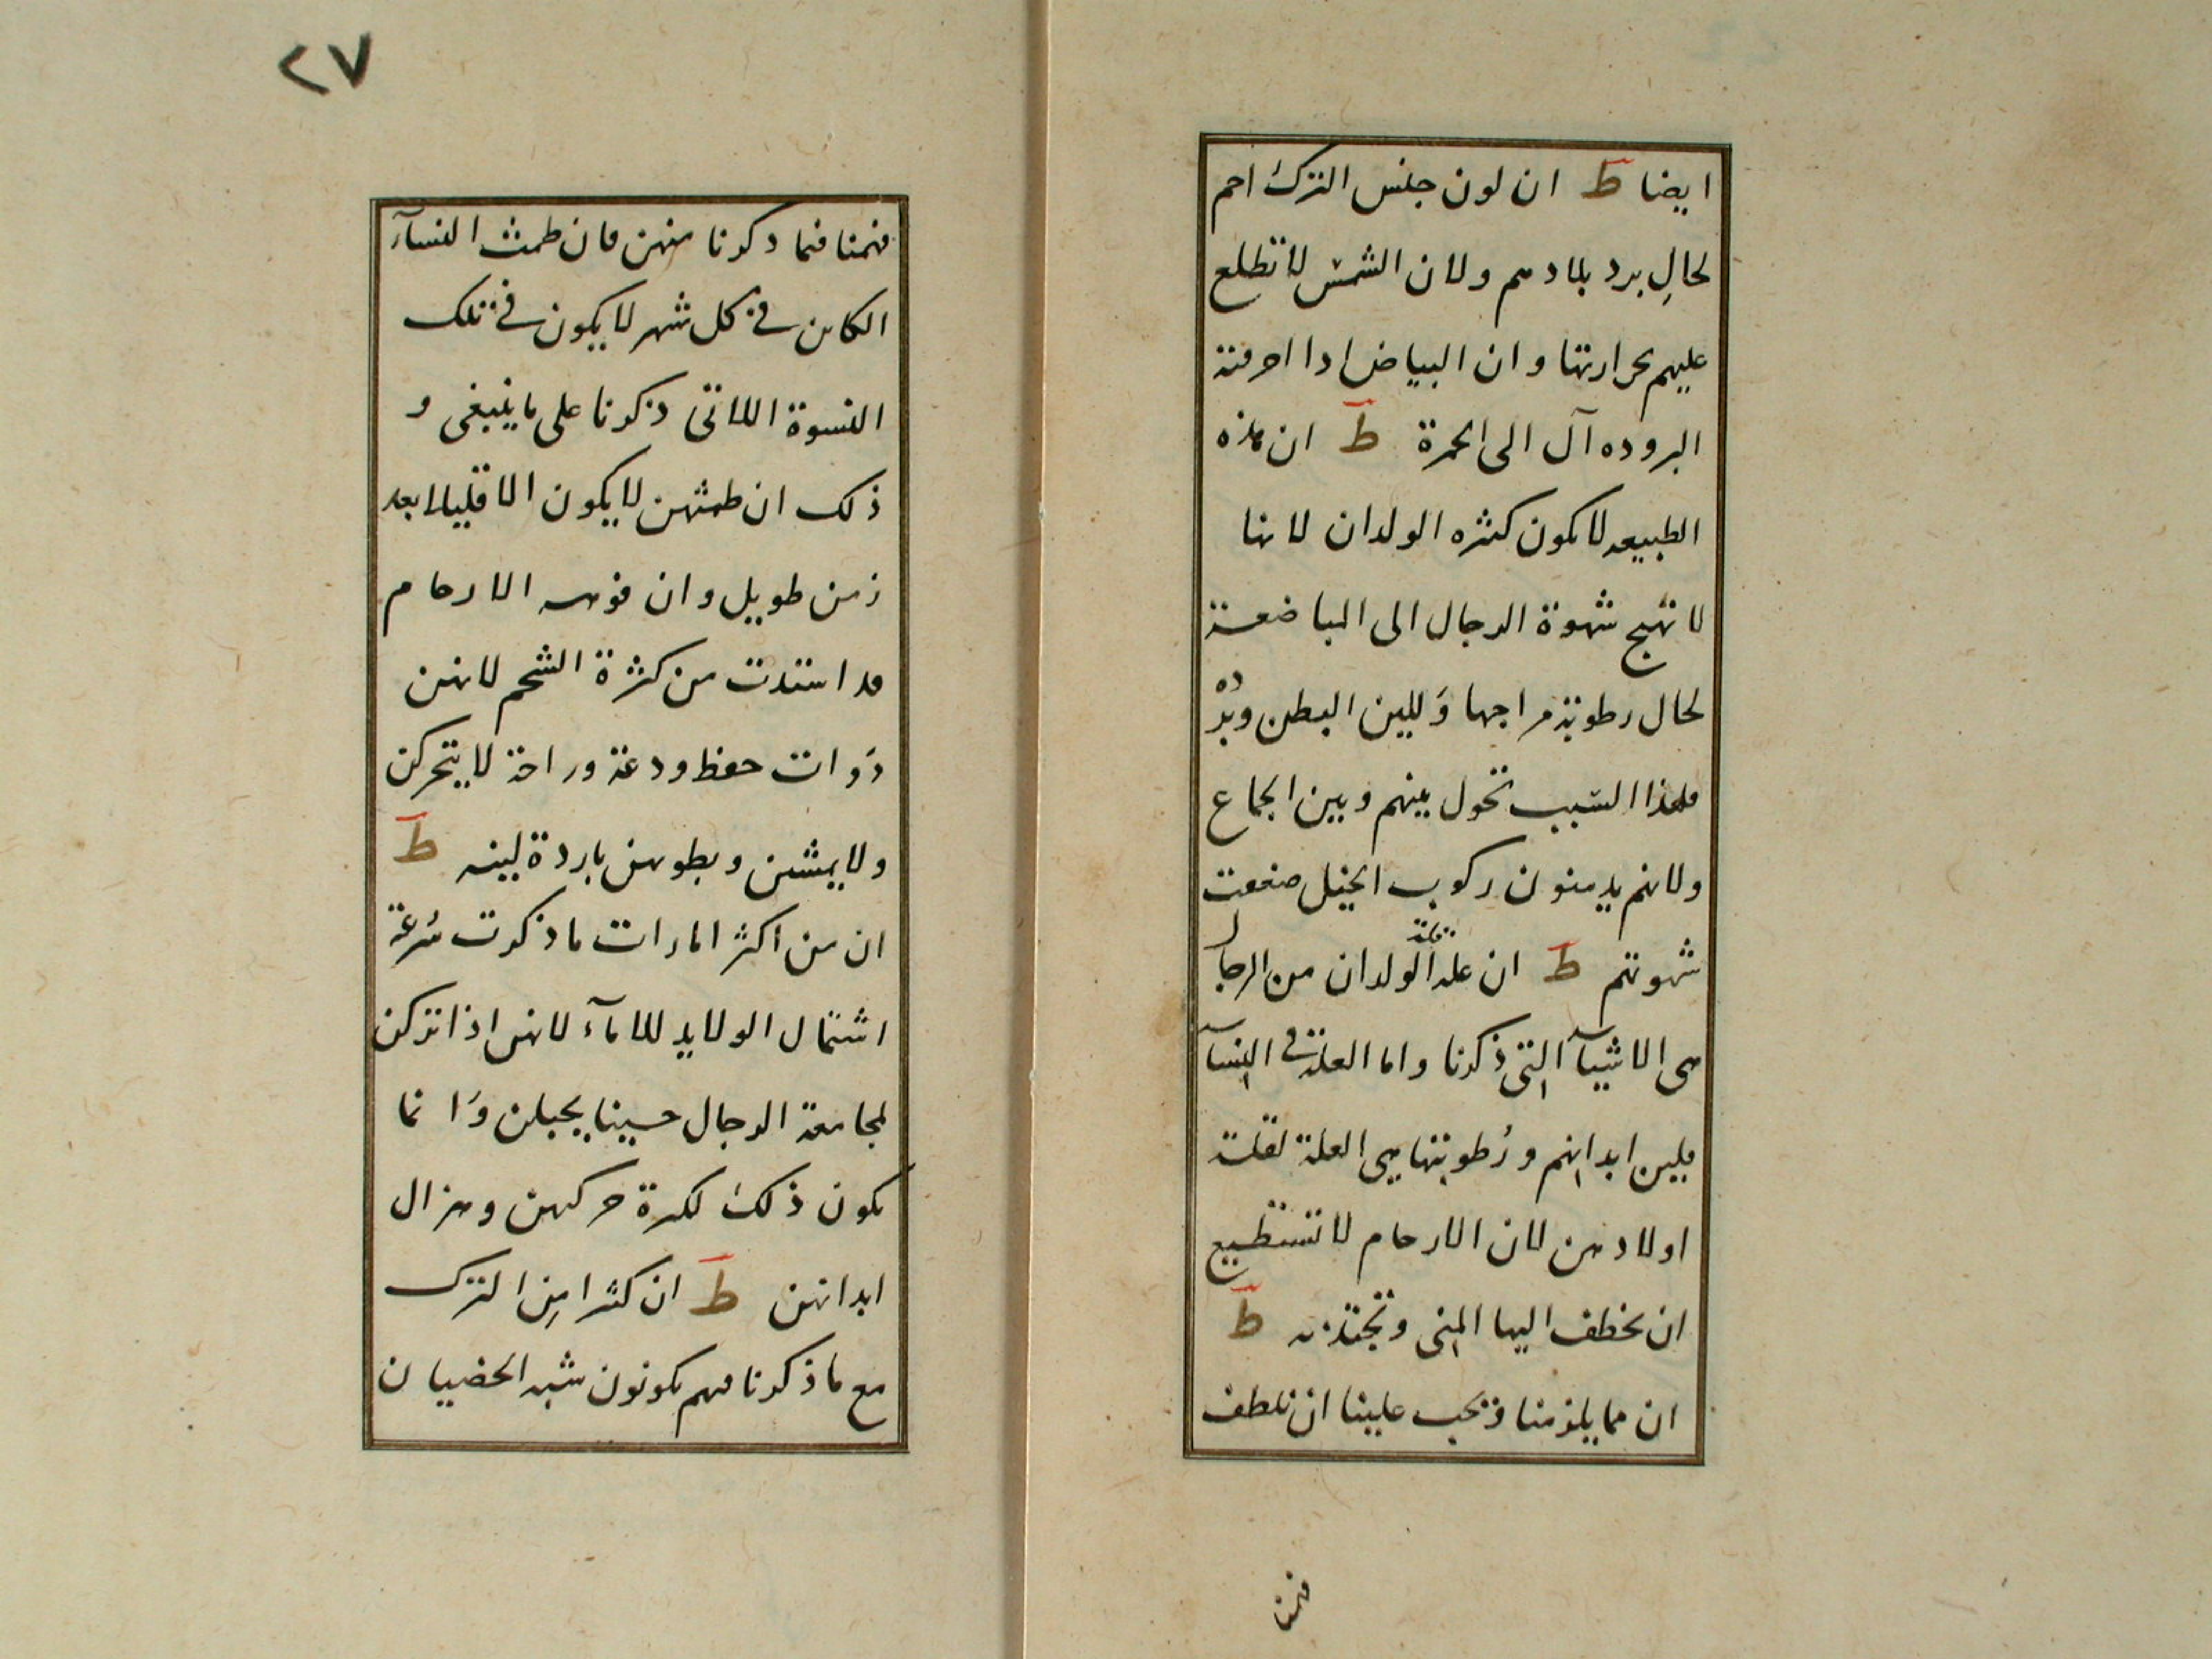 ايضا ط ان لون جنس الترك احم
لحالِ برد بلادهم ولان الشمس لا تطلع
عليهم بحرارتها وان البياض ادا احرقته
البروده آل الى الحمرة ط ان هذه
الطبيعه لا تكون كثيره الولدان لانها
لا تهيج شهوة الرجال الى المباضعة
لحال رطوبة مراجها وَللين البطن وبرْده
فلهذا السبب تحول بينهم وبين الجماع
ولانهم يدمنون ركوب الخيل ضعفت
شهوتهم ط ان علة قلة الولدان من الرجال
هى الاشيآ التى ذكرنا واما العلة فى النسآ
فلين ابدانهم ورُطوبتها هى العلة لقلة
اولادهن لان الارحام لا تستطيع
ان تخطف اليها المنى وتجتذبه ط
ان مما يلزمنا ويجب علينا ان نلطف
فهمنا
٢٧
فهمنا فيما ذكرنا منهن فان طمث النسآء
الكاىن فى كل شهر لا يكون فى تلك
النسوة اللاتى ذكرنا على ما ينبغى و
ذلك ان طمثهن لا يكون الا قليلا بعد
زمن طويل وان فوهه الارحام
قد استدت من كثرة الشحم لانهن
ذوات حفظ ودعة وراحة لا يتحركن
ولا يمشىن وبطونهن باردة لينه ط
ان من اكثر امارات ما ذكرت سُرعة
اشتمال الولايد للامآء لانهن اذا تركن
لمجامعة الرجال حسينا يحبلن وَانما
يكون ذلك لكثرة حركتهن وهزال
ابدانهن ط ان كثيرا مِن الترك
مع ما ذكرنا فهم يكونون شبه الخصيان